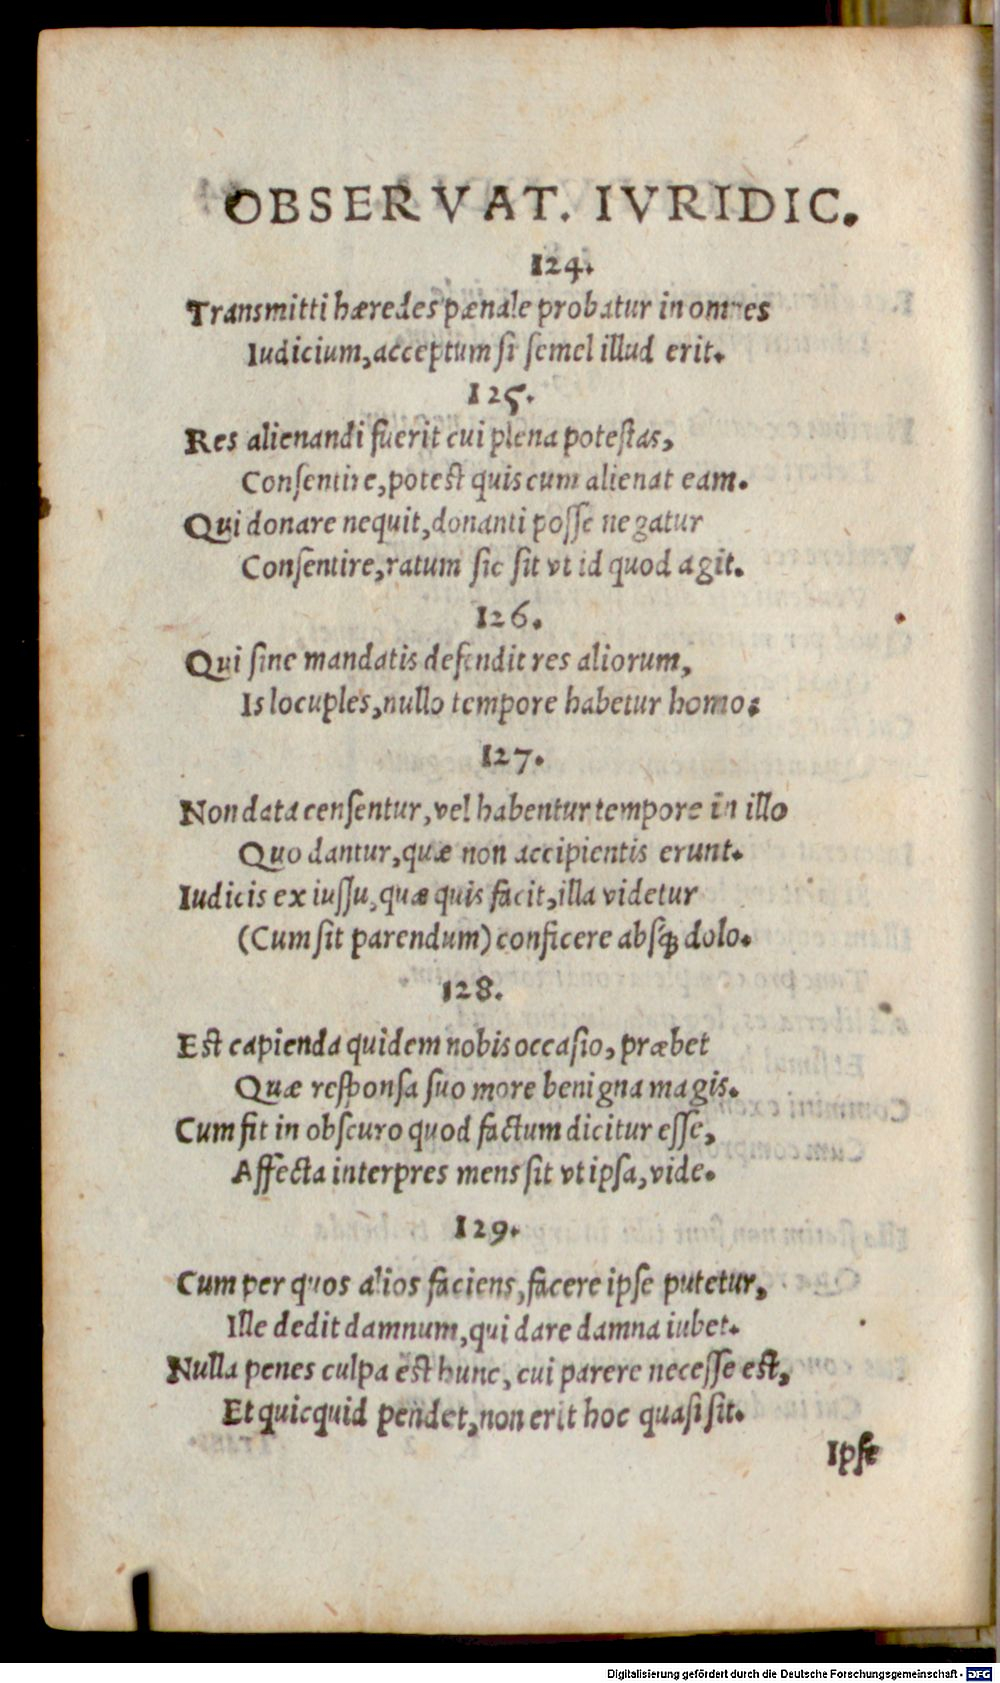 OBSERVAT. IVRIDIC.
124.
Transmitti hæredes pœnale probatur in omnes
Iudicium, acceptum si semel illud erit.
125.
Res alienandi fuerit cui plena potestas,
Consentire, potest quis cum alienat eam.
Qui donare nequit, donanti posse negatur
Consentire, ratum sic sit vt id quod agit.
126.
Qui sine mandatis defendit res aliorum,
Is locuples, nullo tempore habetur homo:
127.
Non data censentur, vel habentur tempore in illo
Quo dantur, quæ non accipientis erunt.
Iudicis ex iussu, quæ quis facit, illa videtur
(Cum sit parendum) conficere absꝗ dolo.
128.
Est capienda quidem nobis occasio, præbet
Quæ responsa suo more benigna magis.
Cum fit in obscuro quod factum dicitur esse,
Affecta interpres mens sit vt ipsa, vide.
129.
Cum per quos alios faciens, facere ipse putetur,
Ille dedit damnum, qui dare damna iubet.
Nulla penes culpa est hunc, cui parere necesse est,
Et quicquid pendet, non erit hoc quasi sit.
Ipse
Digitalisierung gefördert durch die Deutsche Forschungsgemeinschaft - DFG